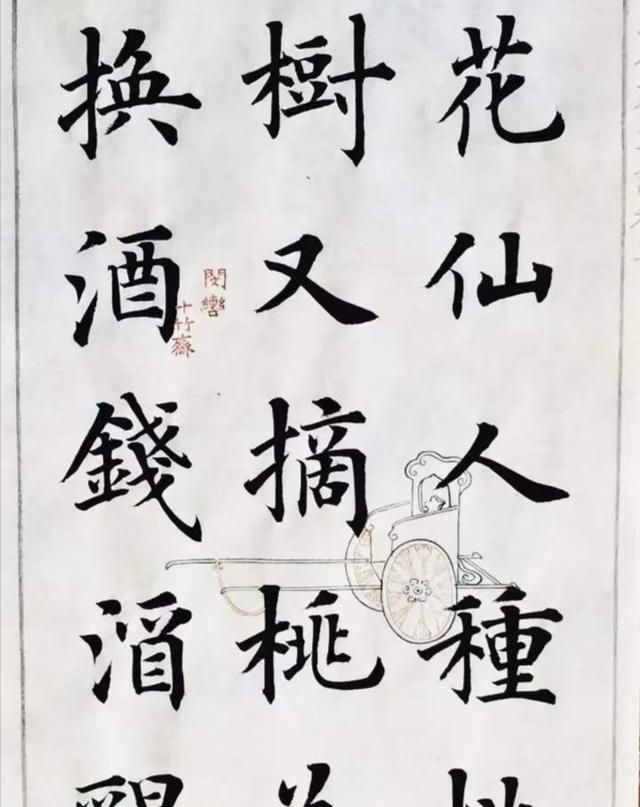 花仙人種
樹又摘桃
換酒錢酒
十竹齋